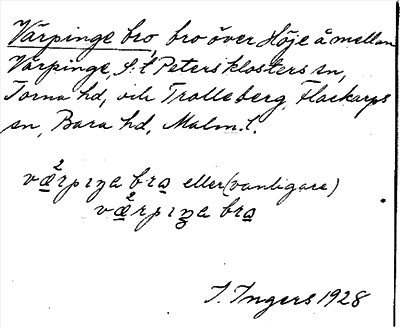 Värpinge bro, bro över Höje å mellan
Värpinge, S:t Peters klosters sn,
Torna hd, och Trolleberg, Flackarps
sn, Bara hd, Malm.l.
væ̀²rpıŋa bra eller (vanligare)
væ̀²rpıŋa bra
I. Ingers 1928